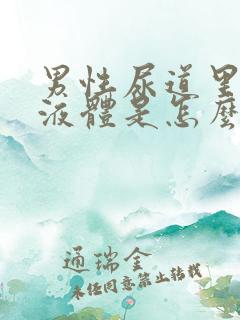 男性尿道里
液體是怎麼
通瑞金
未经同意禁止转载